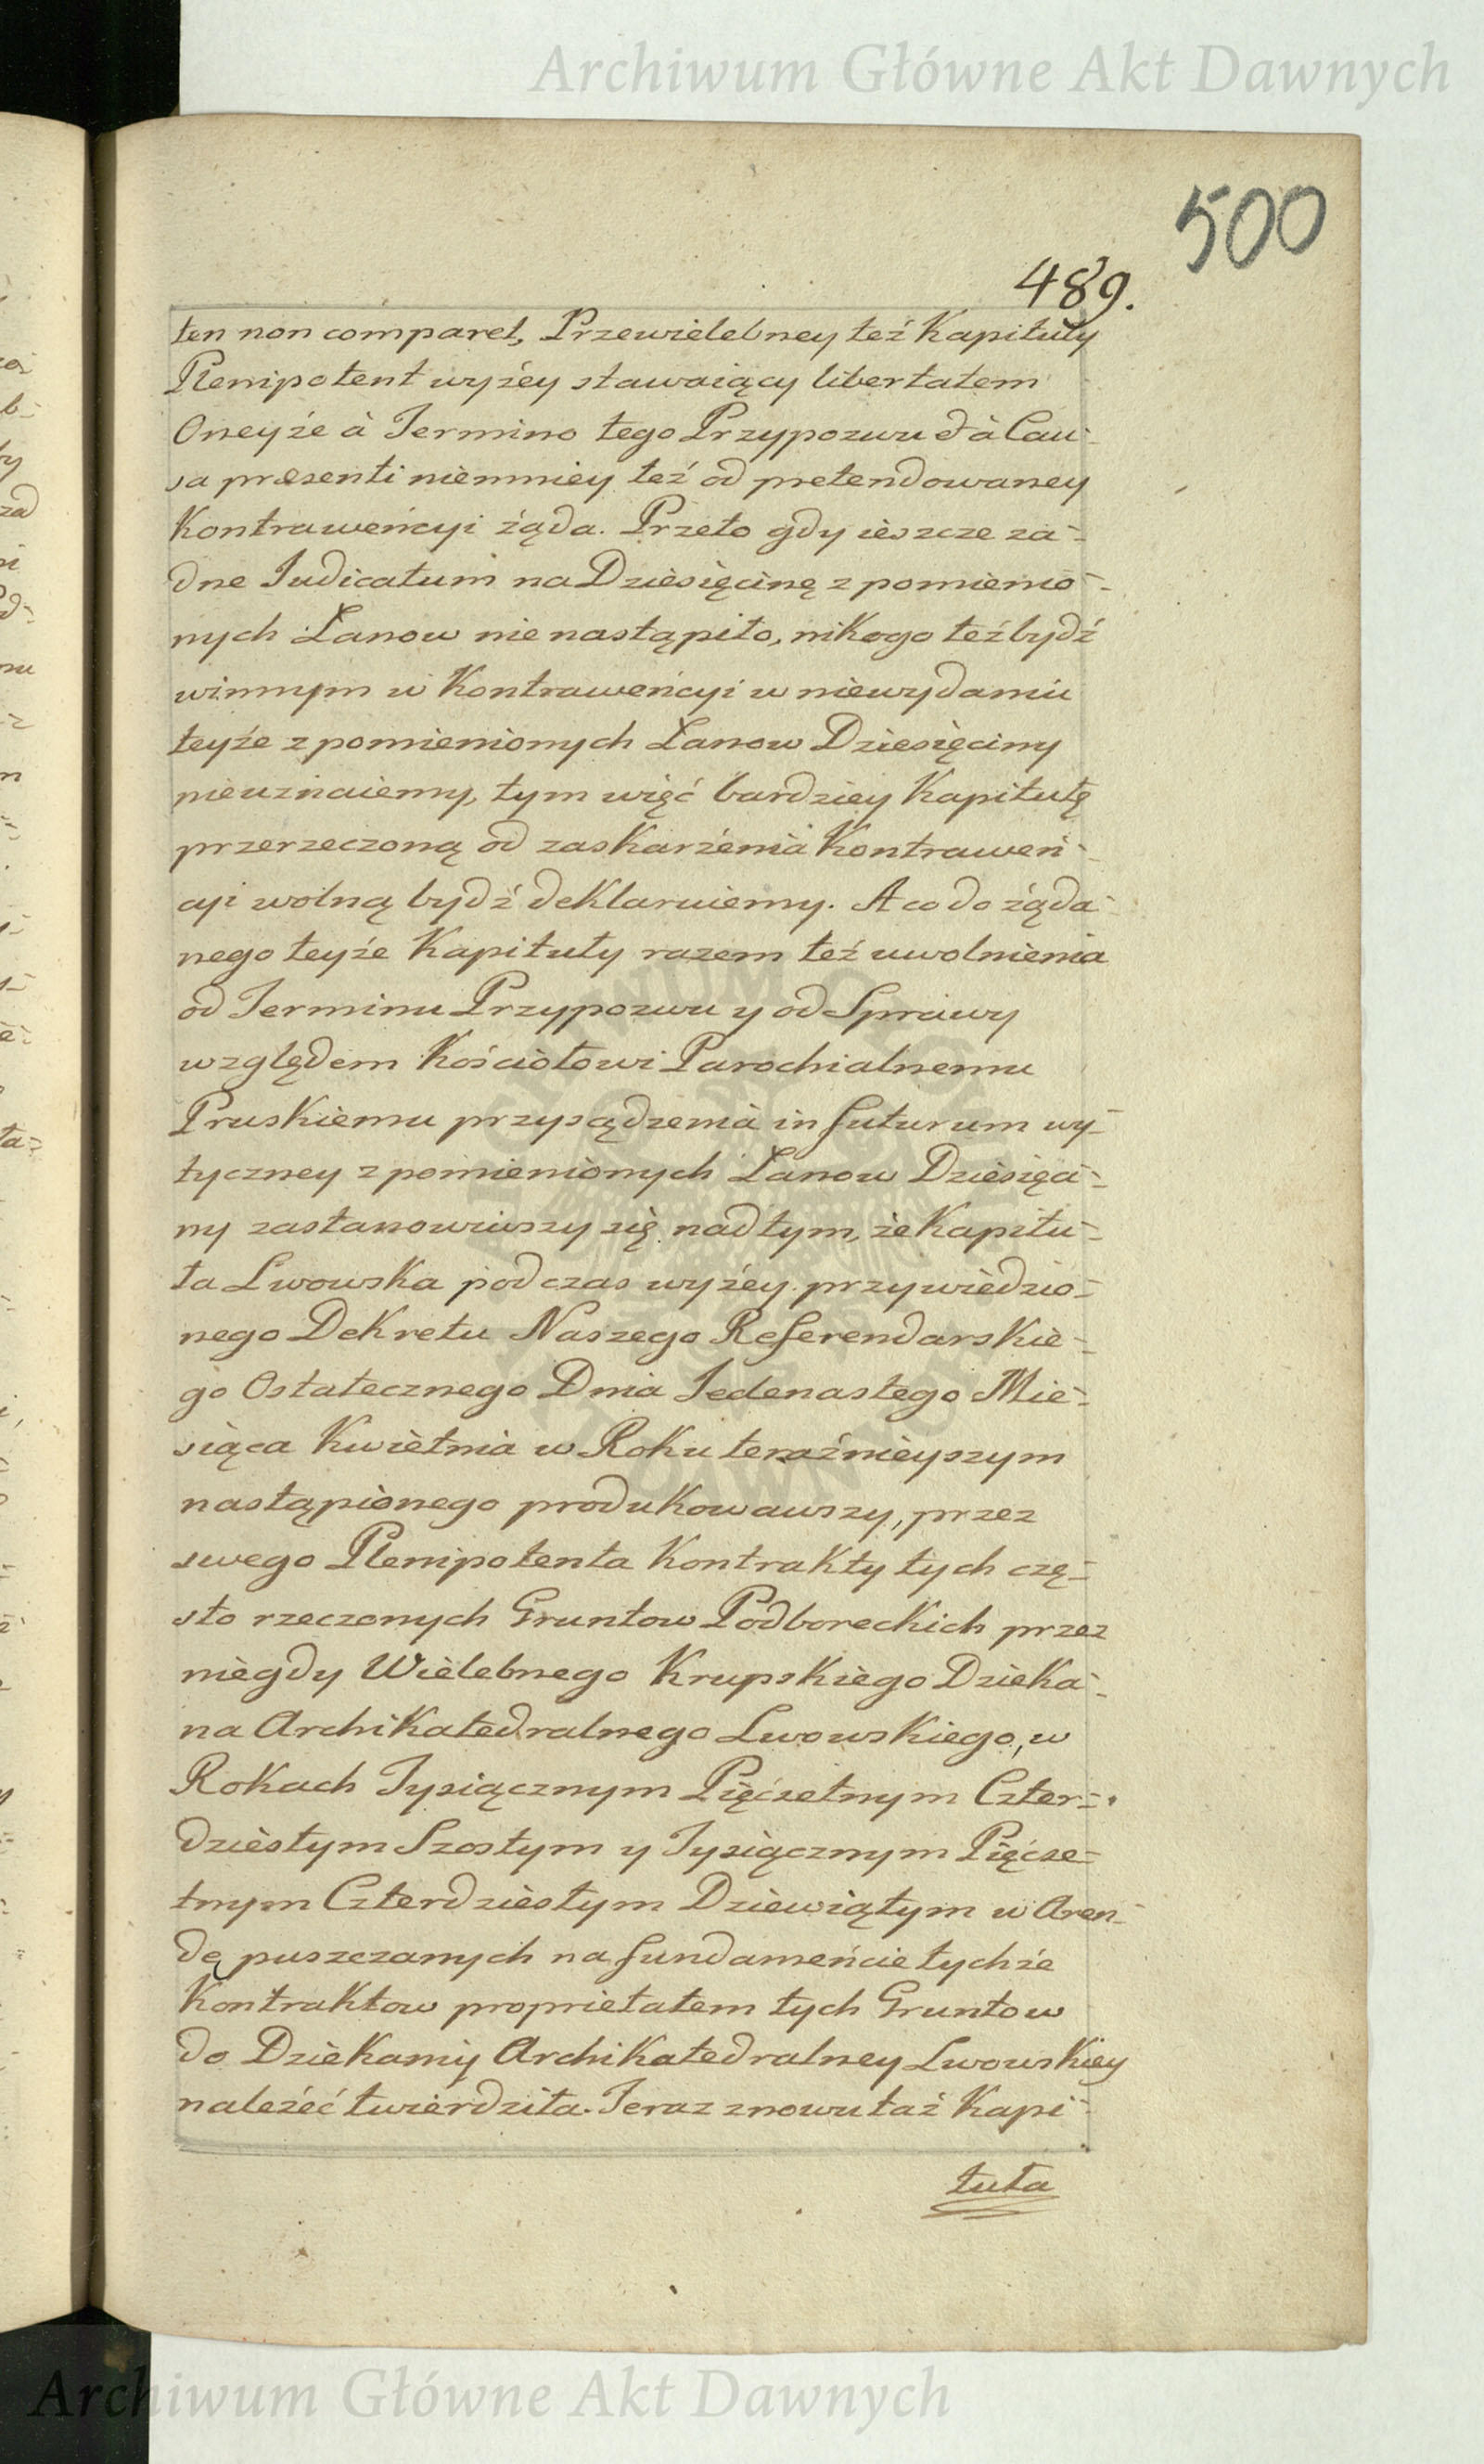 Archiwum Główne Akt Dawnych
500
489.
ten non comparet, Przewielebney też Kapituły
Plenipotent wyżey stawaiący libertatem
Oneyże à Termino tego Przypozwu & à Cau-
sa præsenti niemniey też od pretendowaney
Kontraweńcyi żąda. Przeto gdy ieszcze ża-
dne Iudicatum na Dziesięcinę z pomienio-
nych Łanow nie nastąpiło, nikogo też bydź
winnym w Kontraweńcyi w niewydaniu
teyże z pomienionych Łanow Dziesięciny
nieuznaiemy, tym więć bardziey Kapitułę
przerzeczoną od zaskarżenia Kontraweń-
cyi wolną bydź deklaruiemy. A co do żąda-
nego teyże Kapituły razem też uwolnienia
od Terminu Przypozwu y od Sprawy
względem Kościołowi Parochialnemu
Pruskiemu przysądzenia in futurum wy-
tyczney z pomienionych Łanow Dziesięci-
ny zastanowiwszy się nad tym, że Kapitu-
ła Lwowska podczas wyżey przywiedzio-
nego Dekretu Naszego Referendarskie-
go Ostatecznego Dnia Iedenastego Mie-
siąca Kwietnia w Roku teraźnieyszym
nastąpionego produkowawszy, przez
swego Plenipotenta Kontrakty tych czę-
sto rzeczonych Gruntow Podboreckich przez
niegdy Wielebnego Krupskiego Dzieka-
na Archikatedralnego Lwowskiego, w
Rokach Tysiącznym Pięćsetnym Czter-
dziestym Szostym y Tysiącznym Pięćse-
tnym Czterdziestym Dziewiątym w Aren-
dę puszczanych na fundameńcie tychże
Kontraktow proprietatem tych Gruntow
do Dziekanij Archikatedralney Lwowskiey
należéć twierdziła. Teraz znowu taż Kapi-
tuła
Archiwum Główne Akt Dawnych